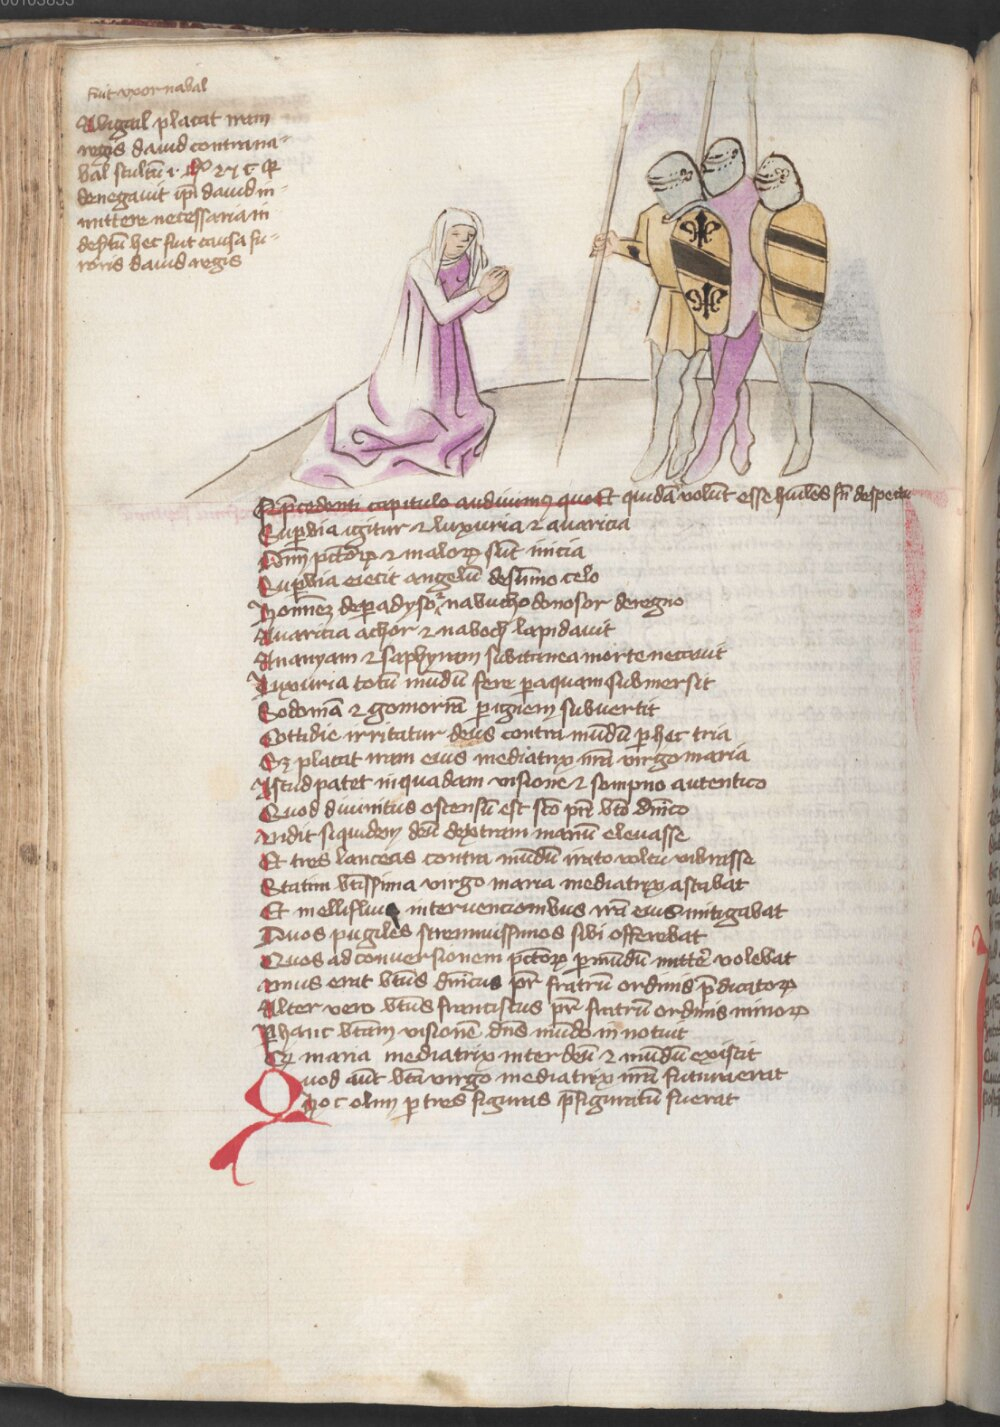 fuit vxor nabal
Abigail placat iram
regis dauid contra na-
bal stultū 1 R° 27 c q
denegauit ip̄i dauid in-
mittere necessaria in
des̄tū hec fuit causa fu-
roris dauid regis
In p̄cedenti capitulo audiuimꝰ quot quidā volūt esse hūiles sn̄ despectu
Supbia igitur ⁊ luxuria ⁊ auaricia
Om̄ pctorꝝ ⁊ malorꝝ sūt inicia
Supbia eiecit angelū de sūmo celo
Hominez de padyso ⁊ nabuchodonosor de regno
Auaricia achor ⁊ naboth lapidauit
Ananyam ⁊ saphyram subitanea morte necauit
Luxuria totū mūdū fere p aquam submersit
Sodomā ⁊ gomorrā p ignem subuertit
Cottidie irritatur deus contra mūdū p hec tria
Sꝫ placat iram eius mediatrix nrā virgo maria
Istud patet in quadam visione ⁊ sompno autentico
Quod diuinitus ostensū est sc̄o pr̄i bt̄o dn̄ico
Vidit siquidem deū dextram manū eleuasse
Et tres lanceas contra mūdū irato voltu vibrasse
Statim bt̄issima virgo maria mediatrix astabat
Et mellifluis interuencionibus irā eius mitigabat
Duos pugiles strennuissimos sibi offerebat
Quos ad conuersionem pctorꝝ p mūdū mitte͛ volebat
vnus erat bt̄us dn̄icus pr̄ fratrū ordinis p̄dicatorꝝ
Alter vero bt̄us franciscus pr̄ fratrū ordinis minorꝝ
Per hanc bt̄am visionē dn̄s mūdo innotuit
Qꝫ maria mediatrix inter deū ⁊ mūdū existit
Quod aūt bt̄a virgo mediatrix nrā futura erat
Hoc olim p tres figuras p̄figuratū fuerat